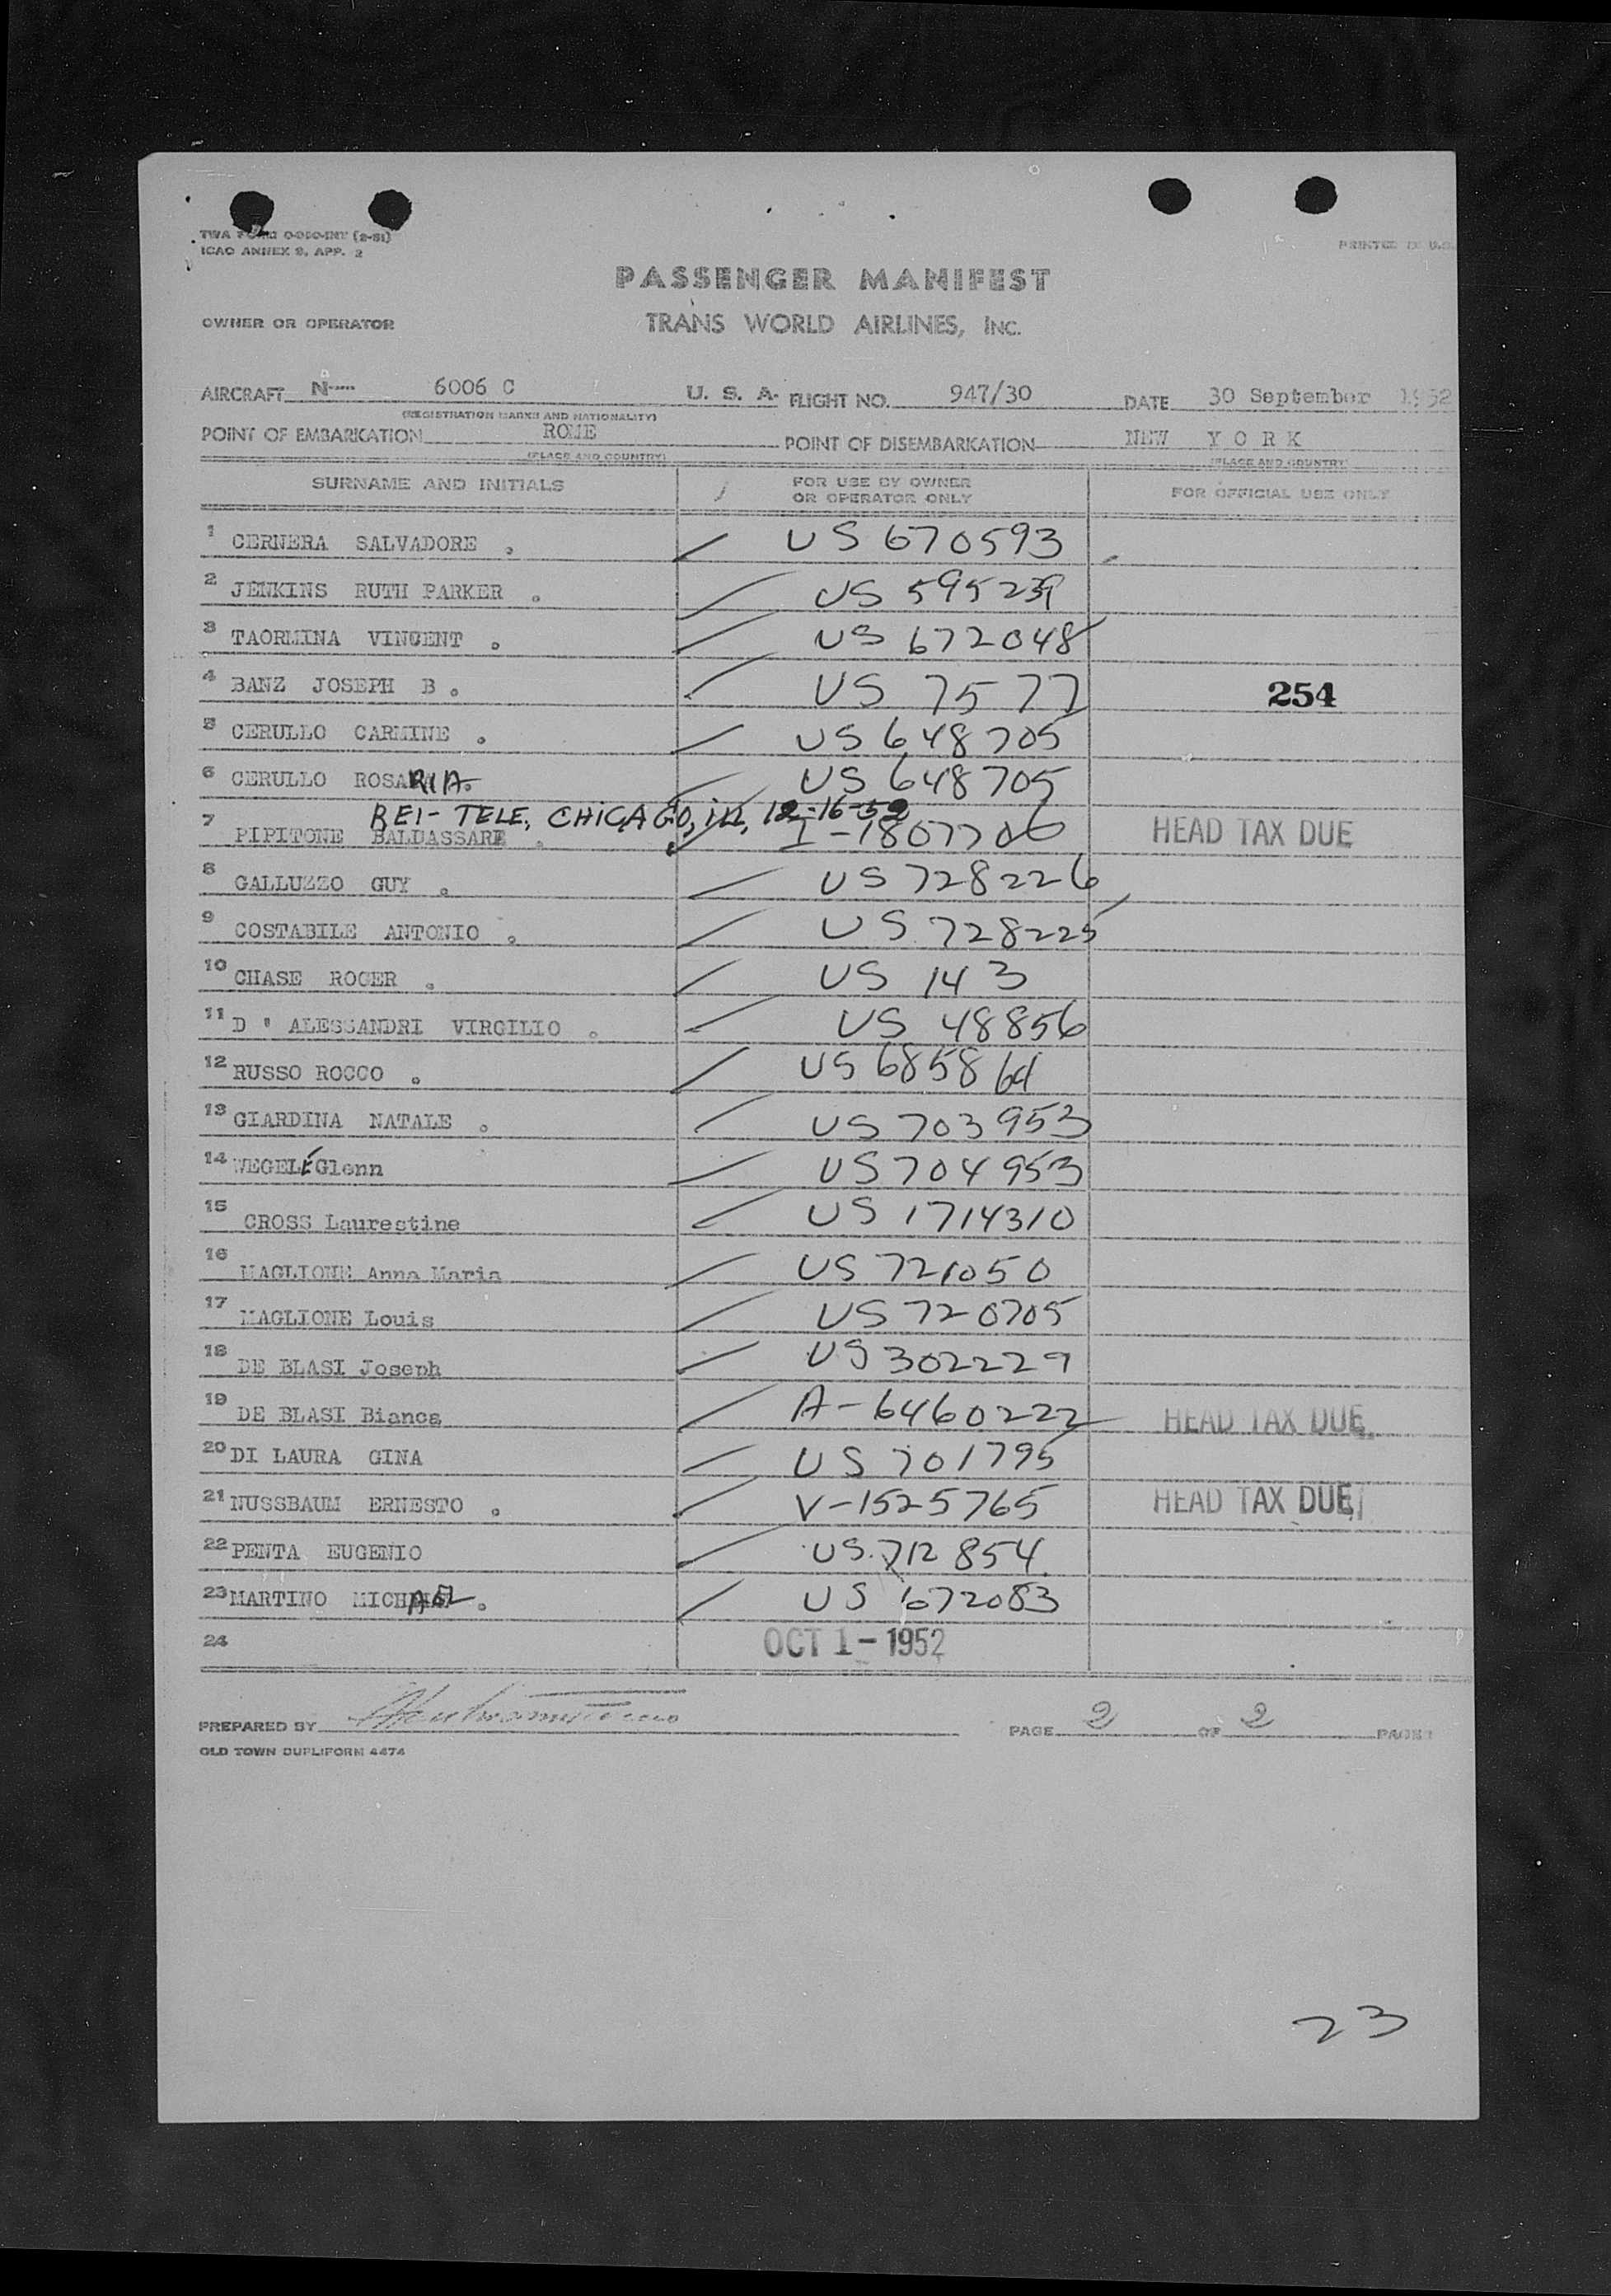 TWA FORM O-050-INT (2-51)
ICAO ANNEX 9, APP. 2
PRINTED IN U.S.
PASSENGER MANIFEST
OWNER OR OPERATOR TRANS WORLD AIRLINES, INC.
AIRCRAFT N---- 6006 C U. S. A. FLIGHT NO. 947/30 DATE 30 September 1952
(REGISTRATION MARKS AND NATIONALITY)
POINT OF EMBARKATION ROME POINT OF DISEMBARKATION NEW Y O R K
(PLACE AND COUNTRY) (PLACE AND COUNTRY)
SURNAME AND INITIALS FOR USE BY OWNER OR OPERATOR ONLY FOR OFFICIAL USE ONLY
1 CERNERA SALVADORE . US 670593
2 JENKINS RUTH PARKER . US 595239
3 TAORMINA VINCENT . US 672048
4 BANZ JOSEPH B . US 7577 254
5 CERULLO CARMINE . US 648705
6 CERULLO ROSARIA. US 648705
REI-TELE, CHICAGO, ill, 12-16-52
7 PIPITONE BALDASSARE . I-1807706 HEAD TAX DUE
8 GALLUZZO GUY . US 728226
9 COSTABILE ANTONIO . US 728225
10 CHASE ROGER . US 143
11 D ' ALESSANDRI VIRGILIO . US 48856
12 RUSSO ROCCO . US 685864
13 GIARDINA NATALE . US 703953
14 WEGELE Glenn US 704953
15 CROSS Laurestine US 1714310
16 MAGLIONE Anna Maria US 721050
17 MAGLIONE Louis US 720705
18 DE BLASI Joseph US 302229
19 DE BLASI Bianca A-6460222 HEAD TAX DUE
20 DI LAURA GINA US 701795
21 NUSSBAUM ERNESTO . V-1525765 HEAD TAX DUE
22 PENTA EUGENIO US 712854
23 MARTINO MICHAEL . US 672083
24 OCT 1 - 1952
PREPARED BY PAGE 2 OF 2 PAGES
OLD TOWN DUPLIFORM 4474
23